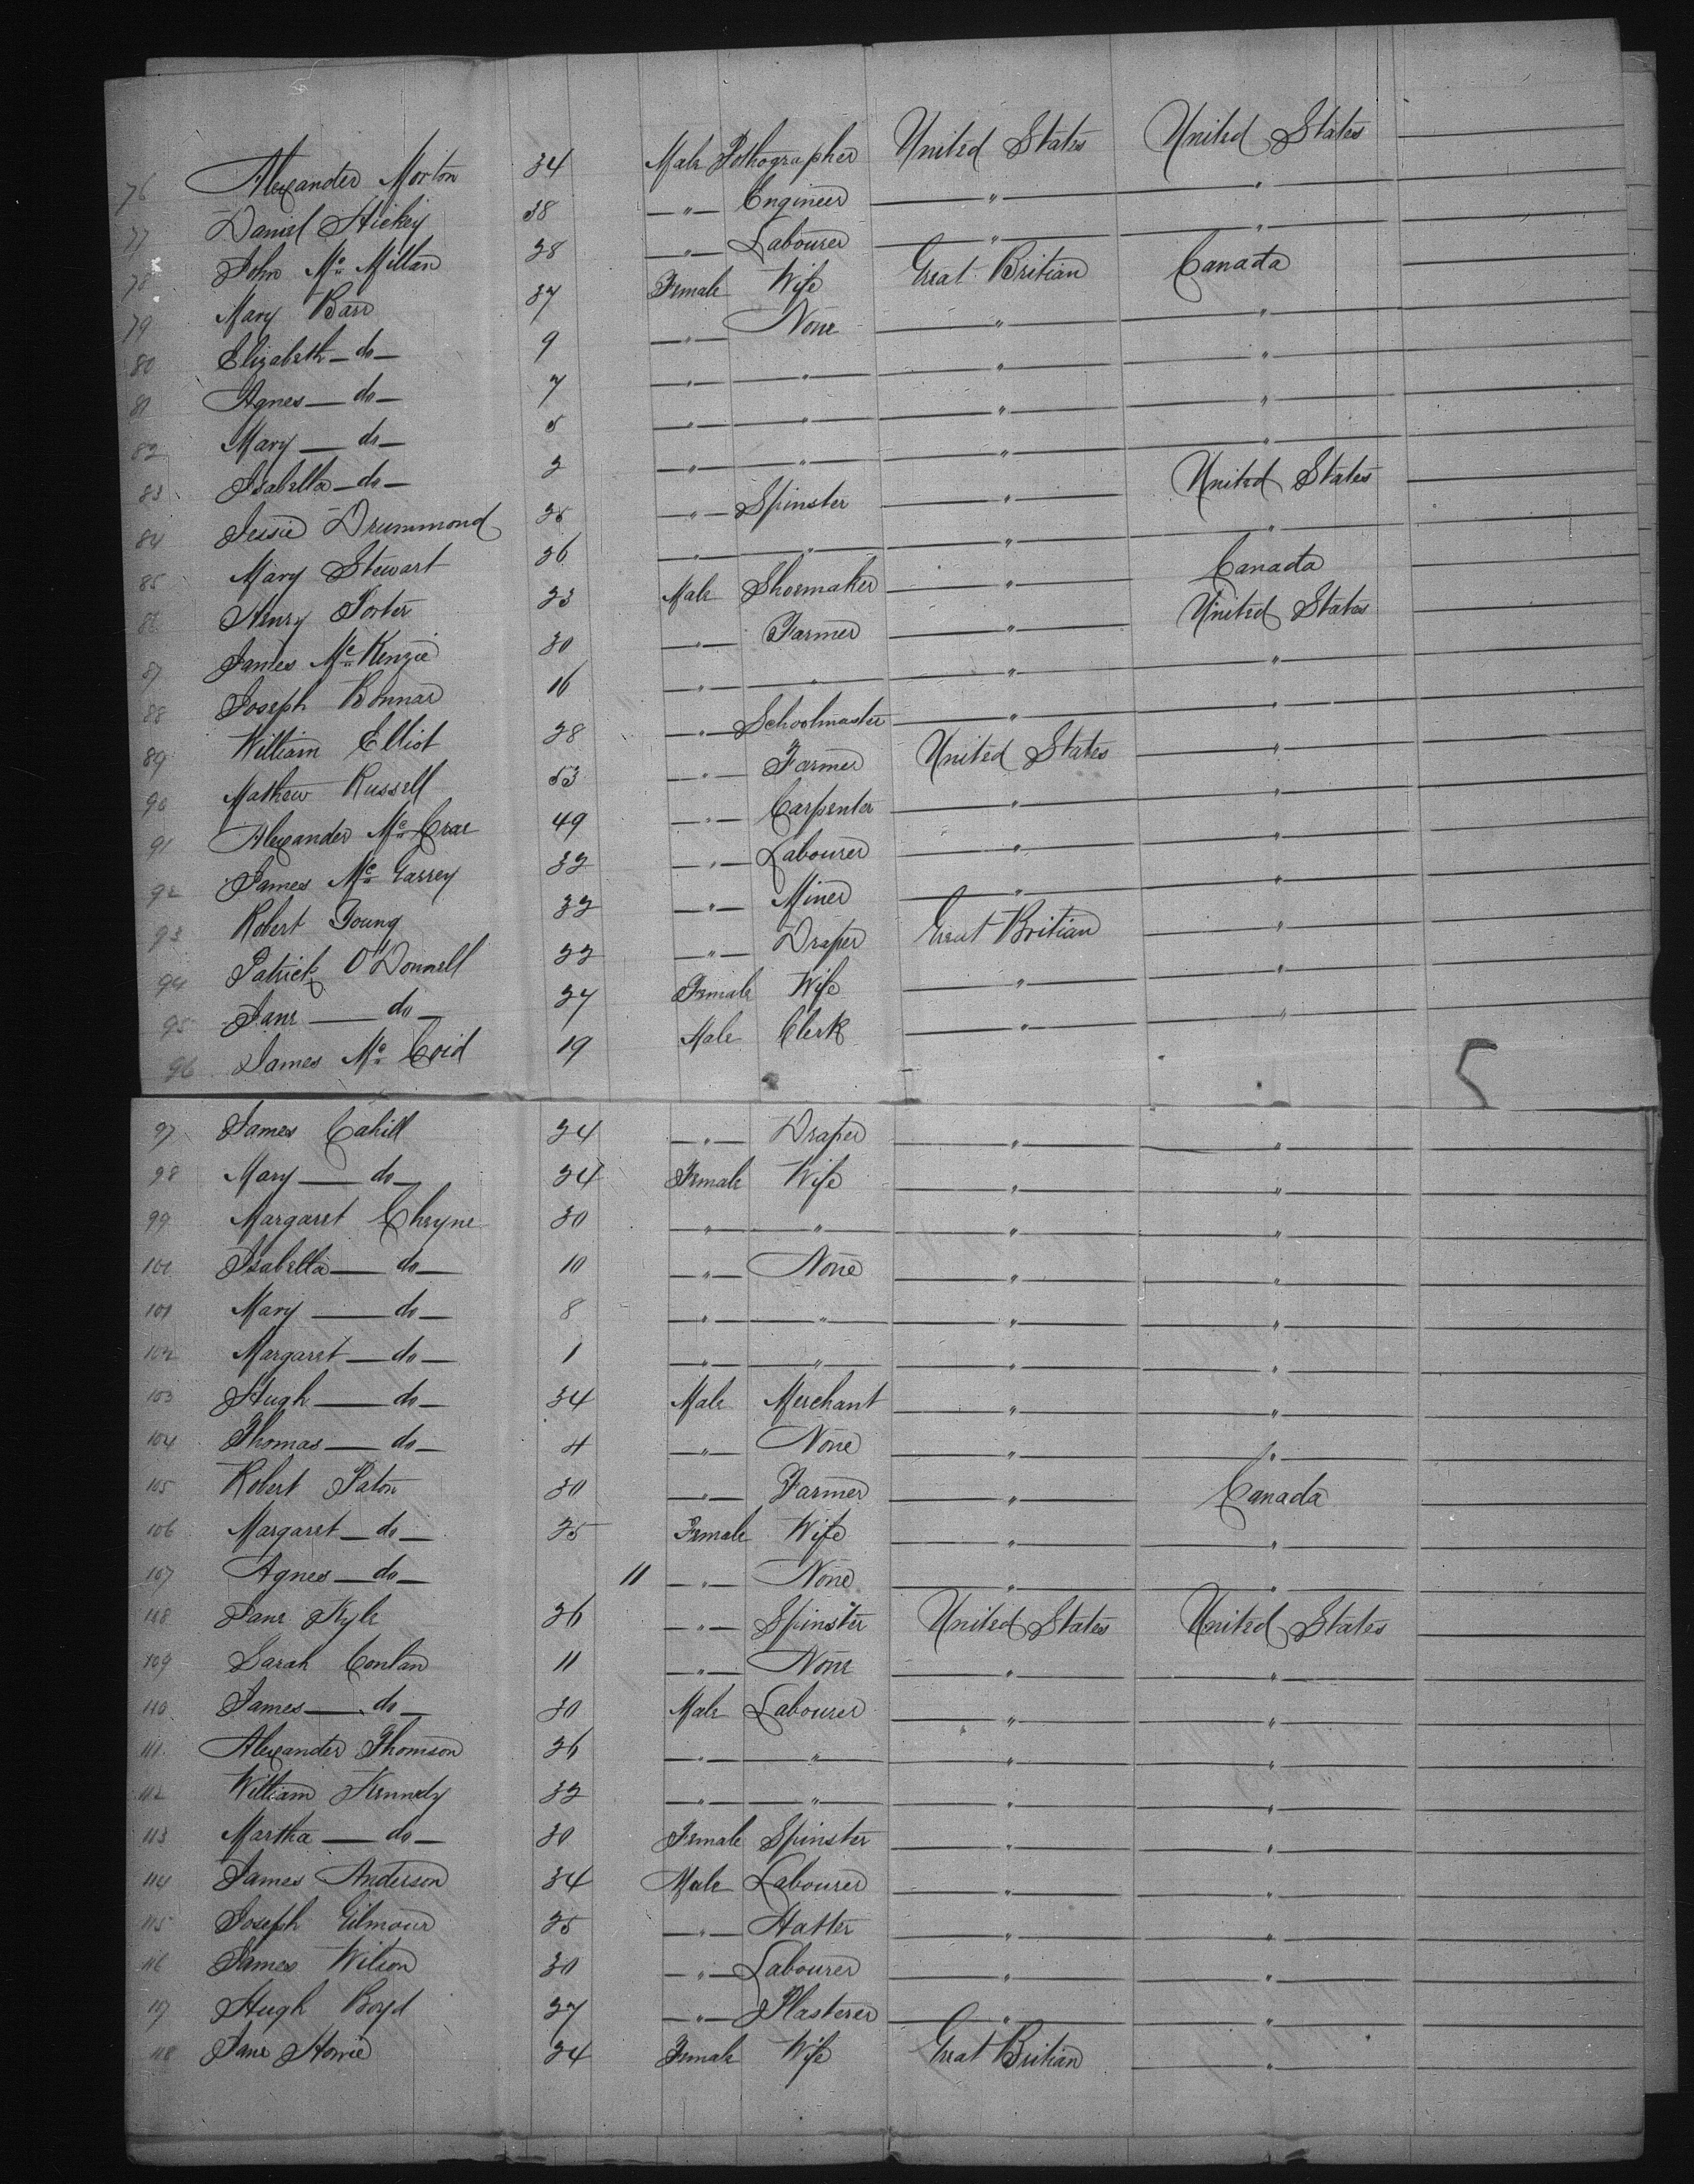 76 Alexander Morton 34 Male Pothographer United States United States
77 Daniel Hickey 38 —"— Engineer —"— "
78 John Mc Millan 28 —"— Labourer —"— "
79 Mary Barr 37 Female Wife Great Britian Canada
80 Elizabeth —do— 9 —"— None —"— "
81 Agnes —do— 7 —"— —"— —"— "
82 Mary —do— 5 —"— —"— —"— "
83 Isabella —do— 2 —"— —"— —"— "
84 Jessie Drummond 25 —"— Spinster —"— United States
85 Mary Stewart 26 —"— —"— —"— "
86 Henry Porter 23 Male Shoemaker —"— Canada
87 James McKenzie 30 —"— Farmer —"— United States
88 Joseph Bonnar 16 —"— —"— —"— "
89 William Elliot 28 —"— Schoolmaster —"— "
90 Mathew Russell 53 —"— Farmer United States "
91 Alexander McCrae 49 —"— Carpenter —"— "
92 James Mc Garrey 32 —"— Labourer —"— "
93 Robert Young 32 —"— Miner —"— "
94 Patrick O'Donnell 22 —"— Draper Great Britian "
95 Jane —do— 27 Female Wife —"— "
96 James Mc Coid 19 Male Clerk —"— "
5
97 James Cahill 24 —"— Draper —"— "
98 Mary —do— 24 Female Wife —"— "
99 Margaret Cheyne 30 —"— " —"— "
100 Isabella —do— 10 —"— None —"— "
101 Mary —do— 8 —"— —"— —"— "
102 Margaret —do— 1 —"— —"— —"— "
103 Hugh —do— 34 Male Merchant —"— "
104 Thomas —do— 4 —"— None —"— "
105 Robert Paton 30 —"— Farmer —"— Canada
106 Margaret —do— 25 Female Wife —"— "
107 Agnes —do— 11 —"— None —"— "
108 Jane Kyle 26 —"— Spinster United States United States
109 Sarah Conlan 11 —"— None —"— "
110 James —do— 30 Male Labourer —"— "
111 Alexander Thomson 26 —"— —"— —"— "
112 William Kennedy 32 —"— —"— —"— "
113 Martha —do— 30 Female Spinster —"— "
114 James Anderson 34 Male Labourer —"— "
115 Joseph Gilmour 25 —"— Hatter —"— "
116 James Wilson 30 —"— Labourer —"— "
117 Hugh Boyd 27 —"— Plasterer —"— "
118 Jane Howie 24 Female Wife Great Britian "